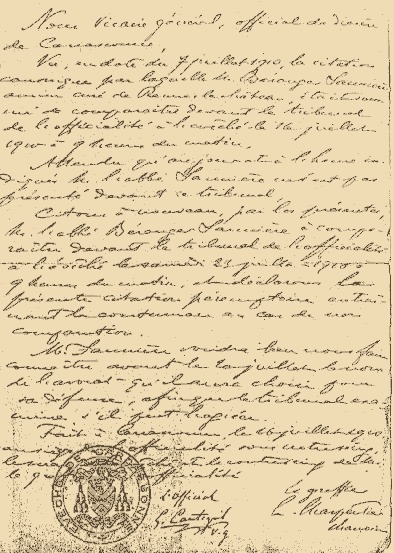 Nous Vicaire général, official du diocèse
de Carcassonne,
Vu, en date du 7 juillet 1910, la citation
canonique par laquelle M. Bérenger Saunière
ancien curé de Rennes-le-Château, était som
mé de comparaître devant le tribunal
de l'officialité à l'évêché le 16 juillet
1910 à 9 heures du matin.
Attendu qu'au jour et à l'heure in
diqués M. l'abbé Saunière ne s'est pas
présenté devant ce tribunal,
Citons à nouveau, par les présentes,
M. l'abbé Bérenger Saunière à compa
raître devant le tribunal de l'officialité
à l'évêché le samedi 23 juillet 1910 à
9 heures du matin, et déclarons la
présente citation péremptoire entraî
nant la contumace au cas de non
comparution.
M. Saunière voudra bien nous faire
connaître avant le juillet le nom
de l'avocat qu'il aura choisi pour
sa défense, afin que le tribunal exa
mine s'il peut l'agréer.
Fait à Carcassonne, le 16 juillet 1910
sous notre seing,
le et le contreseing de
l'officialité
L'official
Le greffier
G. Cantegril
L. Charpentier
v. g.
chanoine